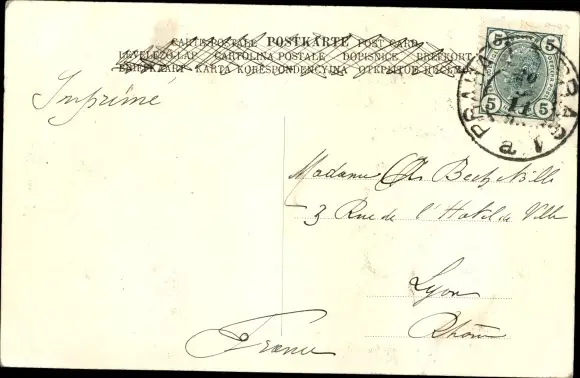 CARTE POSTALE POSTKARTE POST CARD
LEVELEZŐ-LAP CARTOLINA POSTALE DOPISNICE BREFKORT
KARTA KORESPONDENCYJNA
Imprimé
5 5
5 5
PRAHA PRAG
a 1
Madame
3 Rue de l'Hotel de Ville
Lyon
Rhône
France